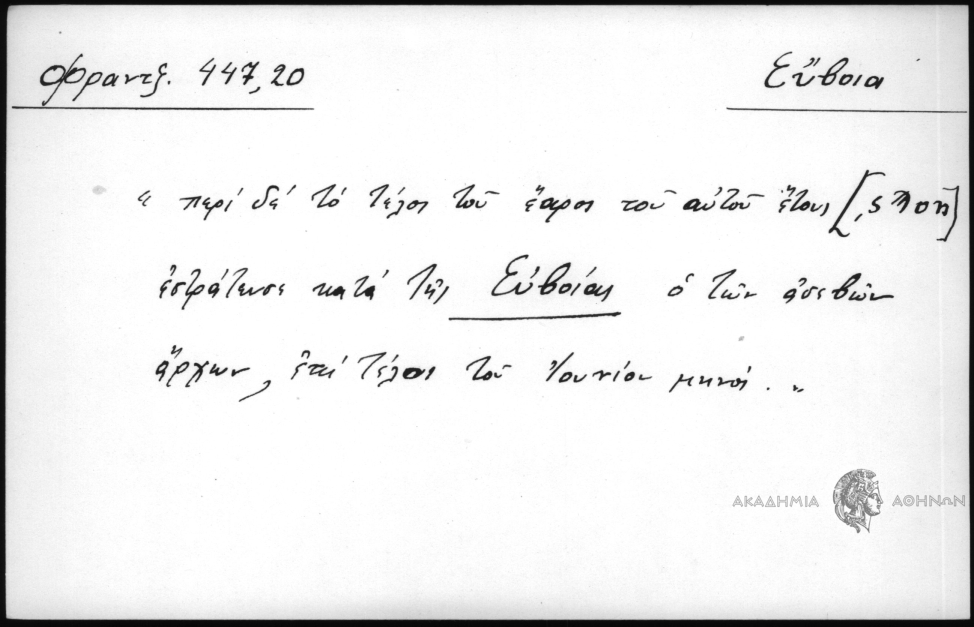 Φραντζ. 447,20
Εὔβοια
" περί δέ τό τέλος τοῦ ἔαρος τοῦ αὐτοῦ ἔτους [,ς λοη]
ἐστράτευσε κατά τῆς Εὐβοίας ὁ τῶν ἀσεβῶν
ἄρχων, ἐπί τέλος τοῦ Ἰουνίου μηνός. "
ΑΚΑΔΗΜΙΑ ΑΘΗΝΩΝ